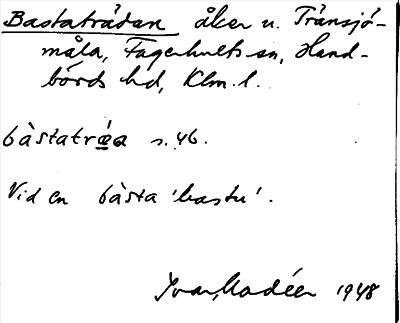 Bastaträdan åker u. Tränsjö-
måla, Fagerhults sn, Hand-
börds hd, Klm. l.
bàstatrǽa s. 46.
Vid en bàsta 'bastu'.
Ivar Modéer 1948